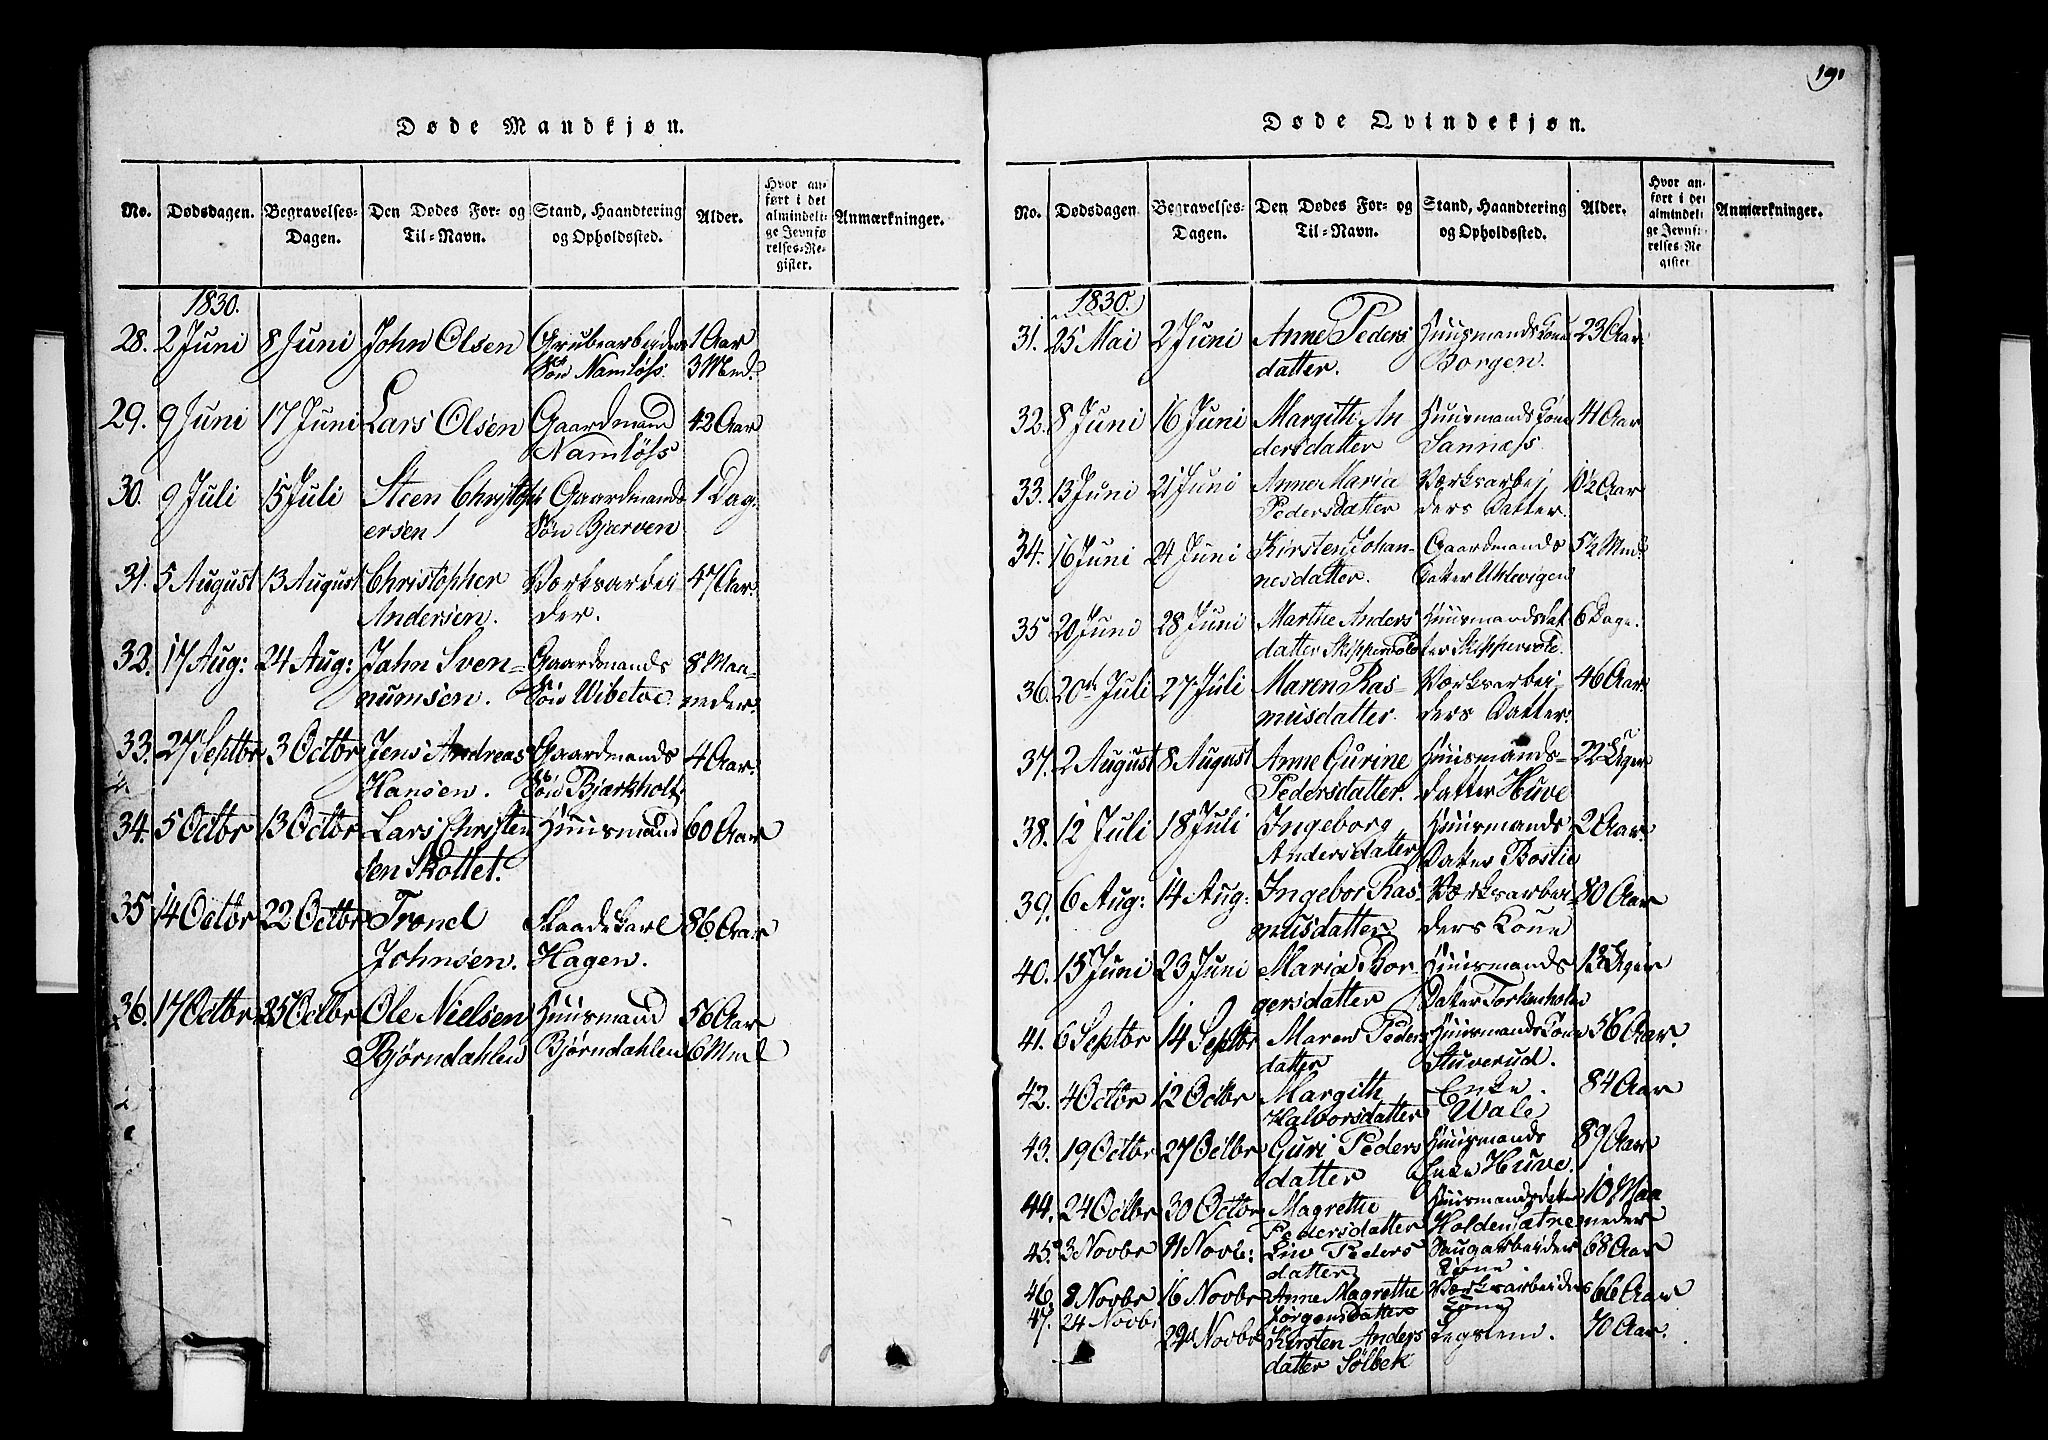 Døde Mandkjøn.
No. Dødsdagen. Begravelses-Dagen. Den Dødes For- og Til-Navn. Stand, Haandtering og Opholdssted. Alder. Hvor anført i det almindelige Jevnførelses-Register. Anmærkninger.
1830.
28. 2 Juni 8 Juni John Olsen Grubearbeider 1 Aar
Søn Namløss. 3 Mnd.
29. 9 Juni 17 Juni Lars Olsen Gaardmand 42 Aar
Namløss
30. 9 Juli 15 Juli Steen Christoph Gaardmands 1 Dag.
ersen Søn Bjerven
31. 5 August 13 August Christopher Værksarbei 47 Aar.
Andersen. der.
32. 17 Aug: 24 Aug: Jahn Sven- Gaardmands 8 Maa-
numsen. Søn Wibetoe. neder.
33. 27 Septbr 3 Octbr Jens Andreas Gaardmands 4 Aar.
Hansen. Søn Bjørkholt
34. 5 Octbr 13 Octbr Lars Christen Huusmand 60 Aar
sen Skottet.
35 14 Octbr 22 Octbr Trond 86 Aar
Johnsen. Hagen.
36. 17 Octbr 25 Octbr Ole Nielsen Huusmand 56 Aar
Bjørndahlen Bjørndahlen 6 Mnd
191
Døde Qvindekjøn.
No. Dødsdagen Begravelses-Dagen. Den Dødes For- og Til-Navn. Stand, Haandtering og Opholdssted. Alder. Hvor anført i det almindelige Jevnførelses-Register Anmærkninger.
1830.
31. 25 Mai 2 Juni Anne Peders Huusmands Kone 23 Aar
datter. Borgen.
32. 8 Juni 16 Juni Margith An Huusmands Kone 41 Aar
dersdatter Sanness.
33. 13 Juni 21 Juni Anne Maria Værksarbei 10½ Aar
Pedersdatter ders Datter.
34. 16 Juni 24 Juni Kirsten Johan- Gaardmands 5½ Mnd.
nesdatter. Datter Uhlevigen
35 20 Juni 28 Juni Marthe Anders Huusmandsdat 6 Dage.
datter Skippervolde ter Skippervolde.
36. 20de Juli 27 Juli Maren Ras- Værksarbei 46 Aar.
musdatter. ders Datter.
37. 2 August 8 August Anne Gurine Huusmands- 22 Uger
Pedersdatter. datter Huve
38. 12 Juli 18 Juli Ingeborg Huusmands 2 Aar.
Andersdatter Datter Boslie
39. 6 Aug: 14 Aug: Ingebor Ras- Værksarbei- 80 Aar
musdatter ders Kone
40. 15 Juni 23 Juni Maria Bor- Huusmands 12 Uger
gersdatter Datter Torkenholm
41. 6 Septbr 14 Septbr Maren Peders Huusmands Kone 56 Aar.
datter Stuverud.
42. 4 Octbr 12 Octbr Margith Enke. 84 Aar
Halvorsdatter Wale
43. 19 Octbr 27 Octbr Guri Peders Huusmands 89 Aar
datter Enke Huve.
44. 24 Octbr 30 Octbr Magrethe Huusmandsdatter 10 Maa
Pedersdatter Holden sætre neder
45. 3 Novbr 11 Novbr: Liv Peders Saugarbeider 68 Aar
datter Kone.
46. 8 Novbr 16 Novbr Anne Magrethe Værksarbeiders 66 Aar
Jørgensdatter Kone
47. 24 Novbr Kirsten Anders Legslem. 70 Aar.
datter Sølbek